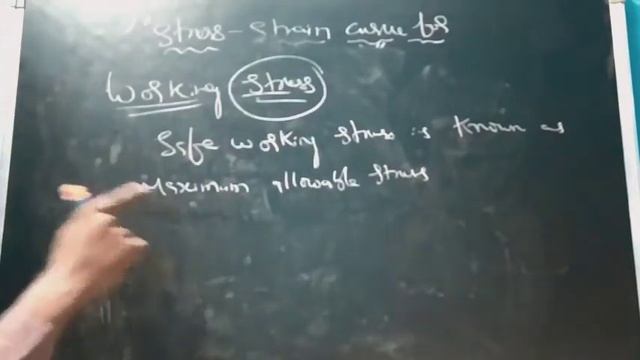 Stress-strain curve for
Working Stress
Safe working stress is known as
Maximum allowable stress